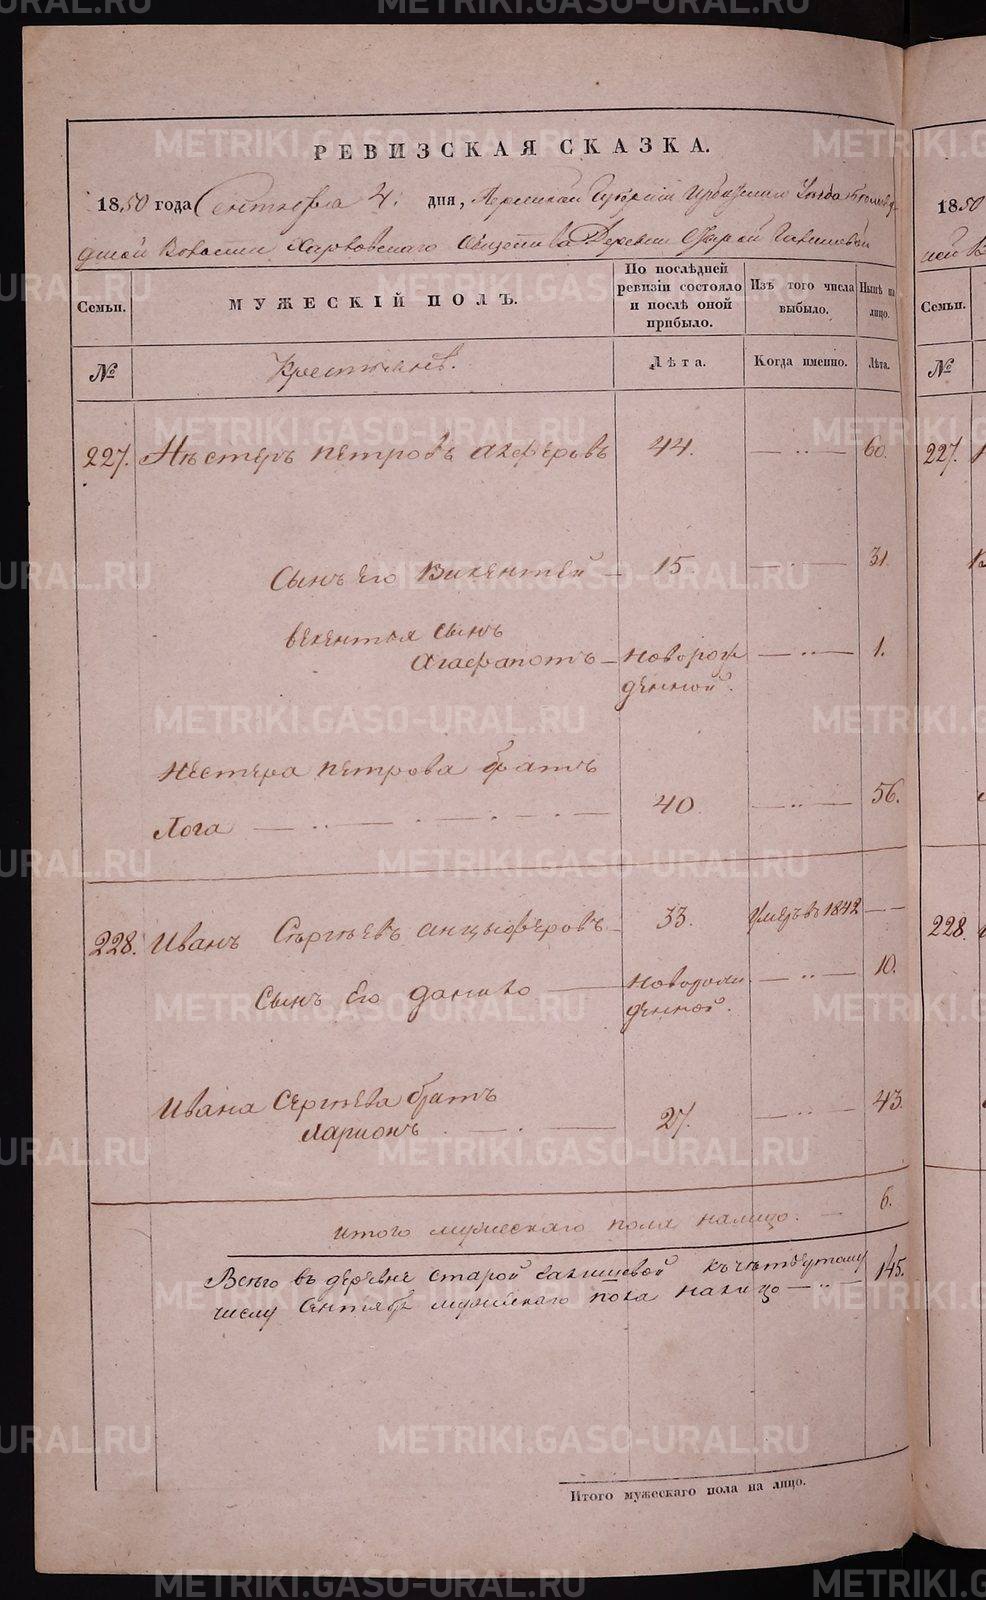 METRIKI.GASO-URAL.RU
РЕВИЗСКАЯ СКАЗКА.
1850 года Сентября 4. дня, Пермской Губернiи Ирбитскаго Уѣзда
Волости Харловскаго Общества Деревни Старой Гакишевой
Семьи.
МУЖЕСКIЙ ПОЛЪ.
По послѣдней ревизiи состояло и послѣ оной прибыло.
Изъ того числа выбыло.
Нынѣ на лицо.
№
Крестьянъ.
Лѣта.
Когда именно.
Лѣта.
227. Нестеръ Петровъ 44. — „ — 60.
Сынъ Его Викентей — 15. — „ — 31.
Векентья сынъ
Агафапотъ — новорож — „ — 1.
денной.
Нестера Петрова братъ
Лога 40. — „ — 56.
228. Иванъ Сергѣевъ анцыферовъ 33. Умеръ въ 1842 — —
Сынъ Его данило — новорожденной. — „ — 10.
Ивана Сергѣева братъ
Ларионъ 27. — „ — 43.
итого мужескаго пола налицо. — 6.
Всего въ деревне Старой къ четвертому
числу Сентября мужескаго пола налицо — „ — 145.
Итого мужескаго пола на лицо.
1850
Семьи.
№
227.
228.